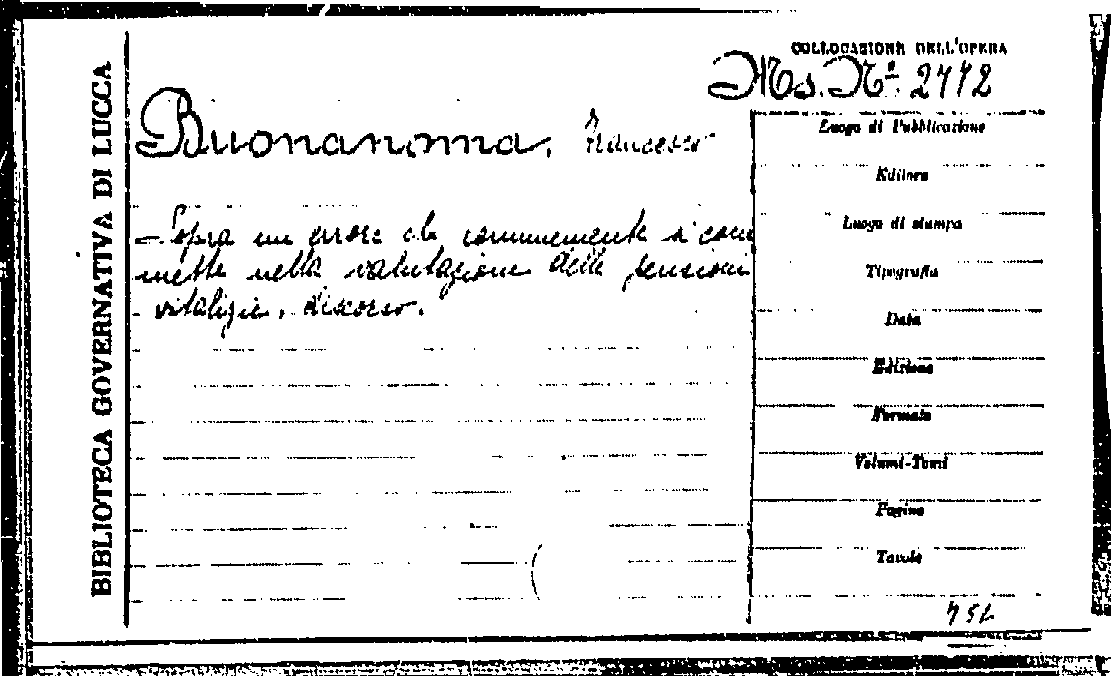 BIBLIOTECA GOVERNATIVA DI LUCCA
COLLOCAZIONE DELL'OPERA
Ms. Nº. 2772
Buonanoma, Francesco
- Sopra un errore che comunemente si com
mette nella valutazione delle pensioni
vitalizie, discorso.
Luogo di Pubblicazione
Editore
Luogo di stampa
Tipografia
Data
Edizione
Formato
Volumi-Tomi
Pagine
Tavole